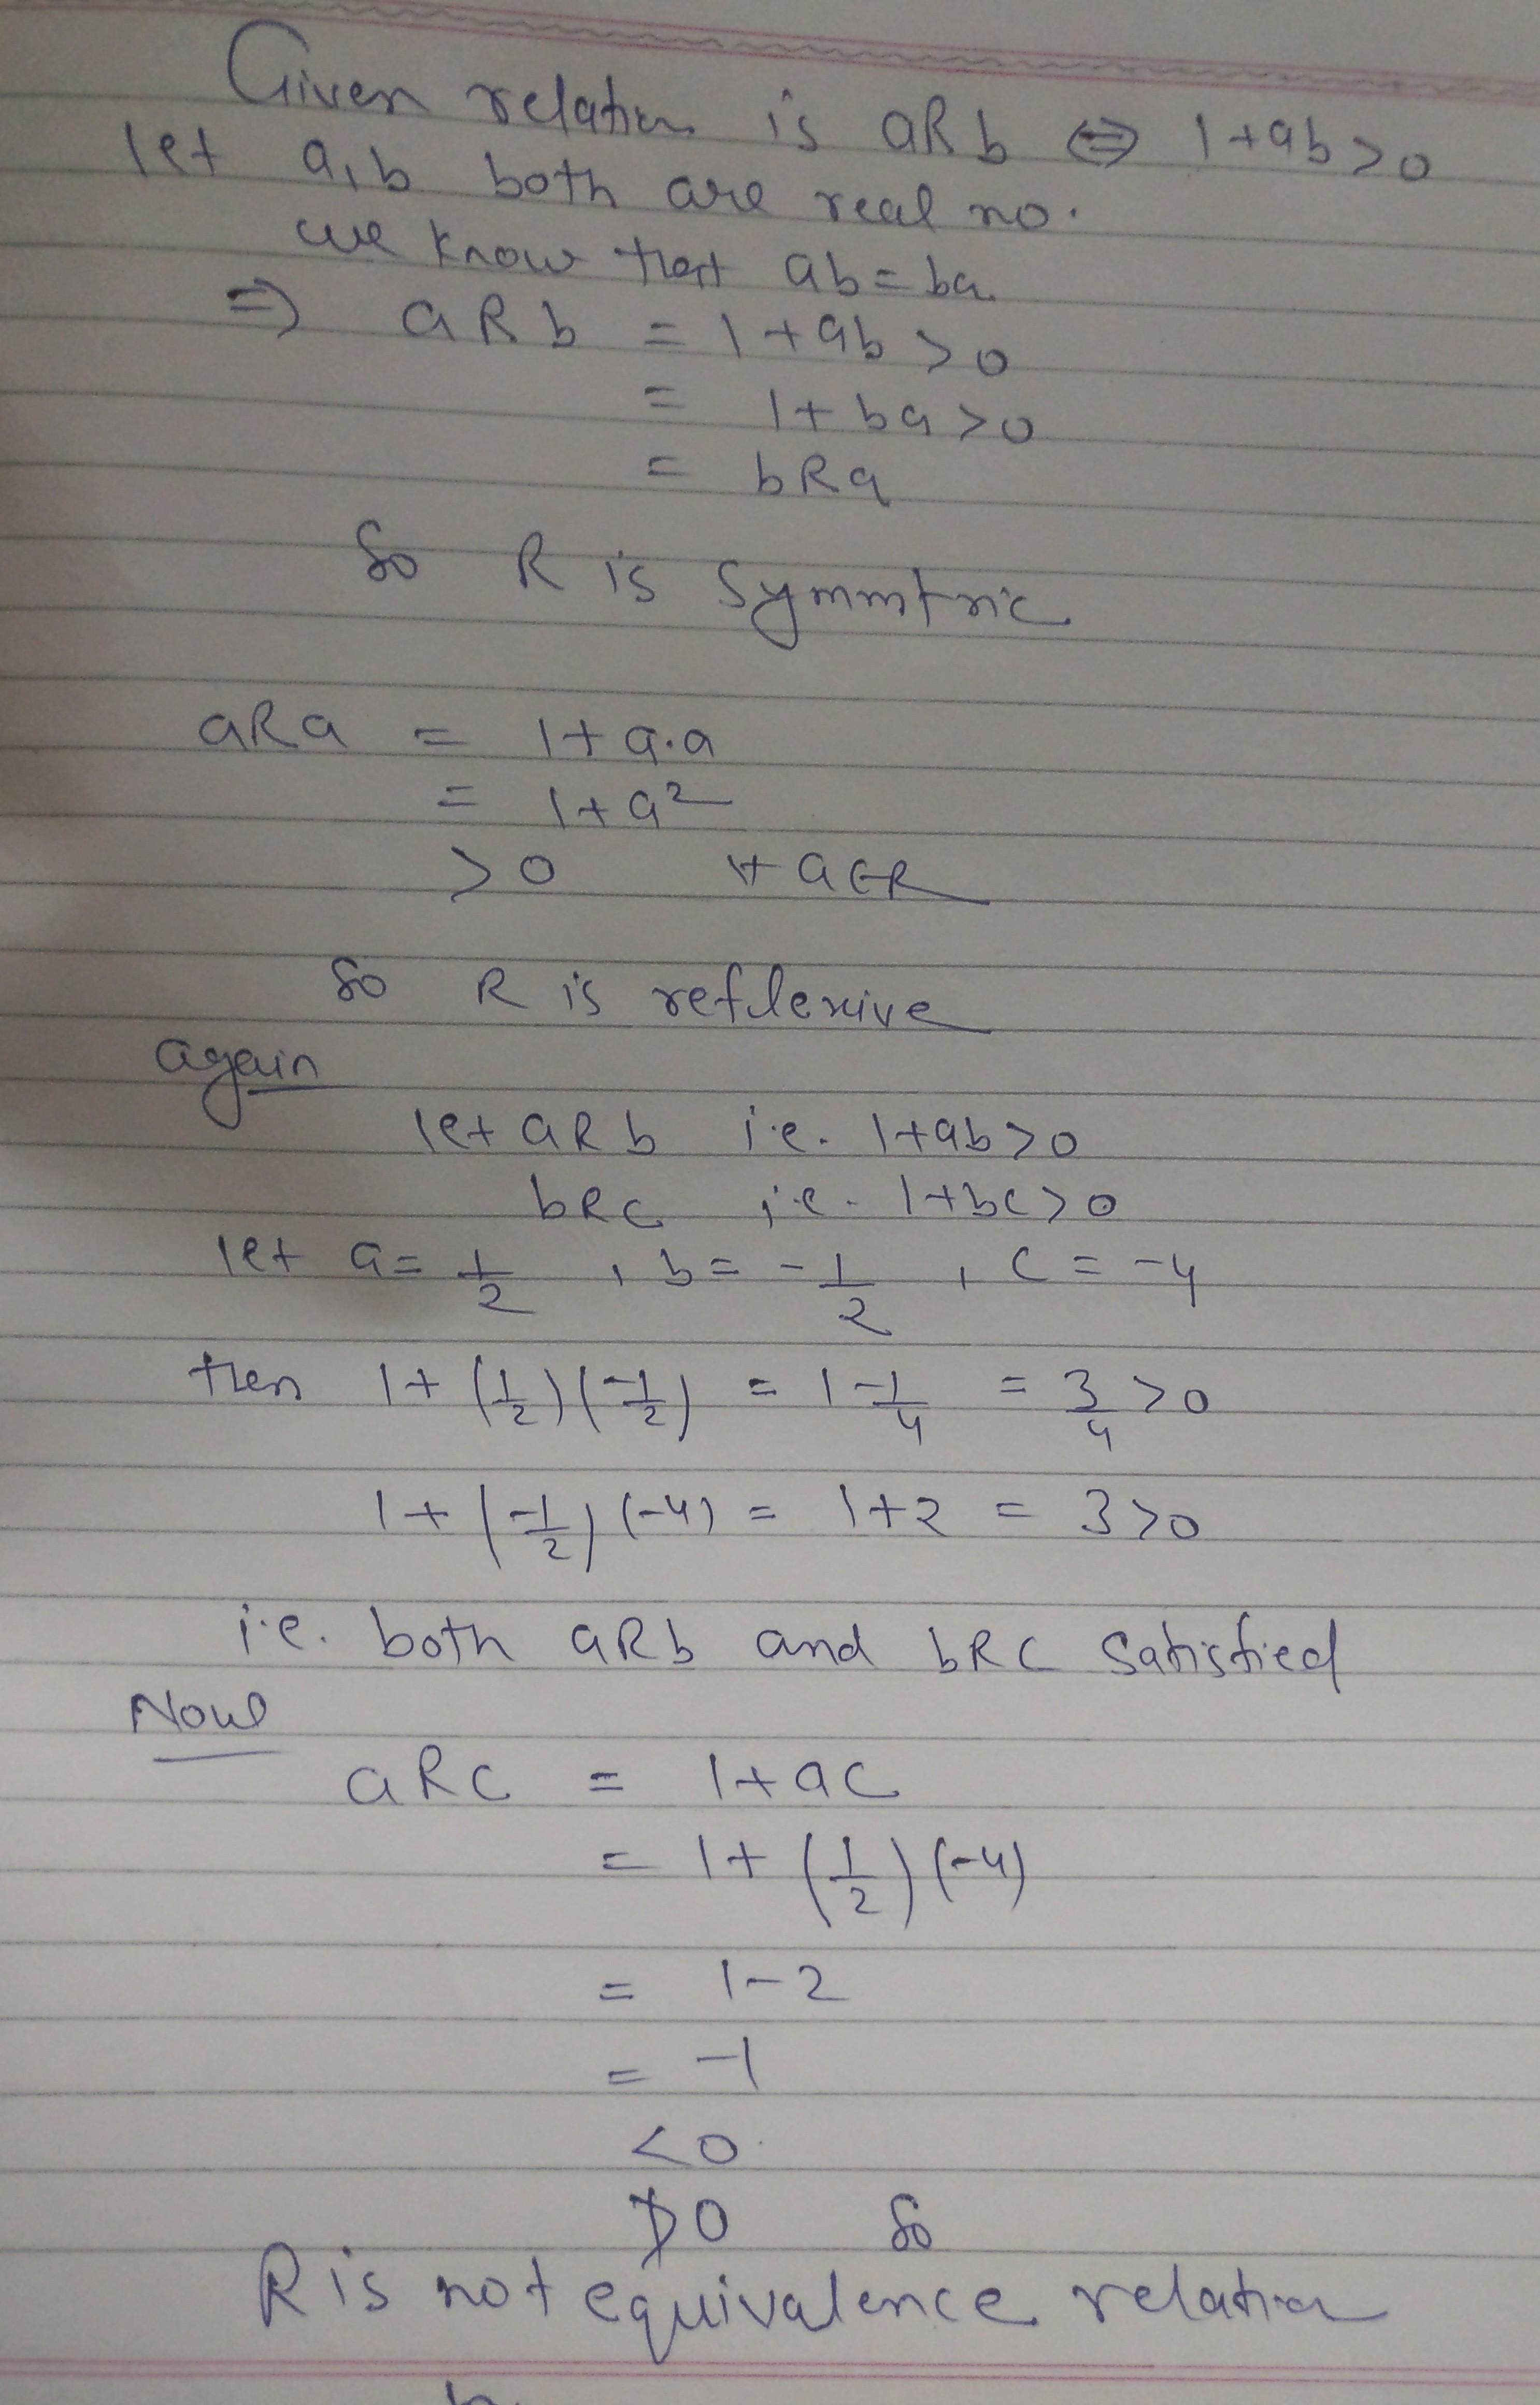 Given relation is aRb ⇔ 1+ab>0
let a,b both are real no.
we know that ab=ba
⇒ aRb = 1+ab>0
= 1+ba>0
= bRa
So R is symmtric
aRa = 1+a.a
= 1+a²
>0 ∀ a∈R
So R is reflexive
again
let aRb i.e. 1+ab>0
bRc i.e. 1+bc>0
let a= 1/2 , b= -1/2 , c=-4
then 1+(1/2)(-1/2) = 1-1/4 = 3/4 >0
1+(-1/2)(-4) = 1+2 = 3>0
i.e. both aRb and bRc satisfied
Now
aRc = 1+ac
= 1+(1/2)(-4)
= 1-2
= -1
<0
≯0 So
R is not equivalence relation